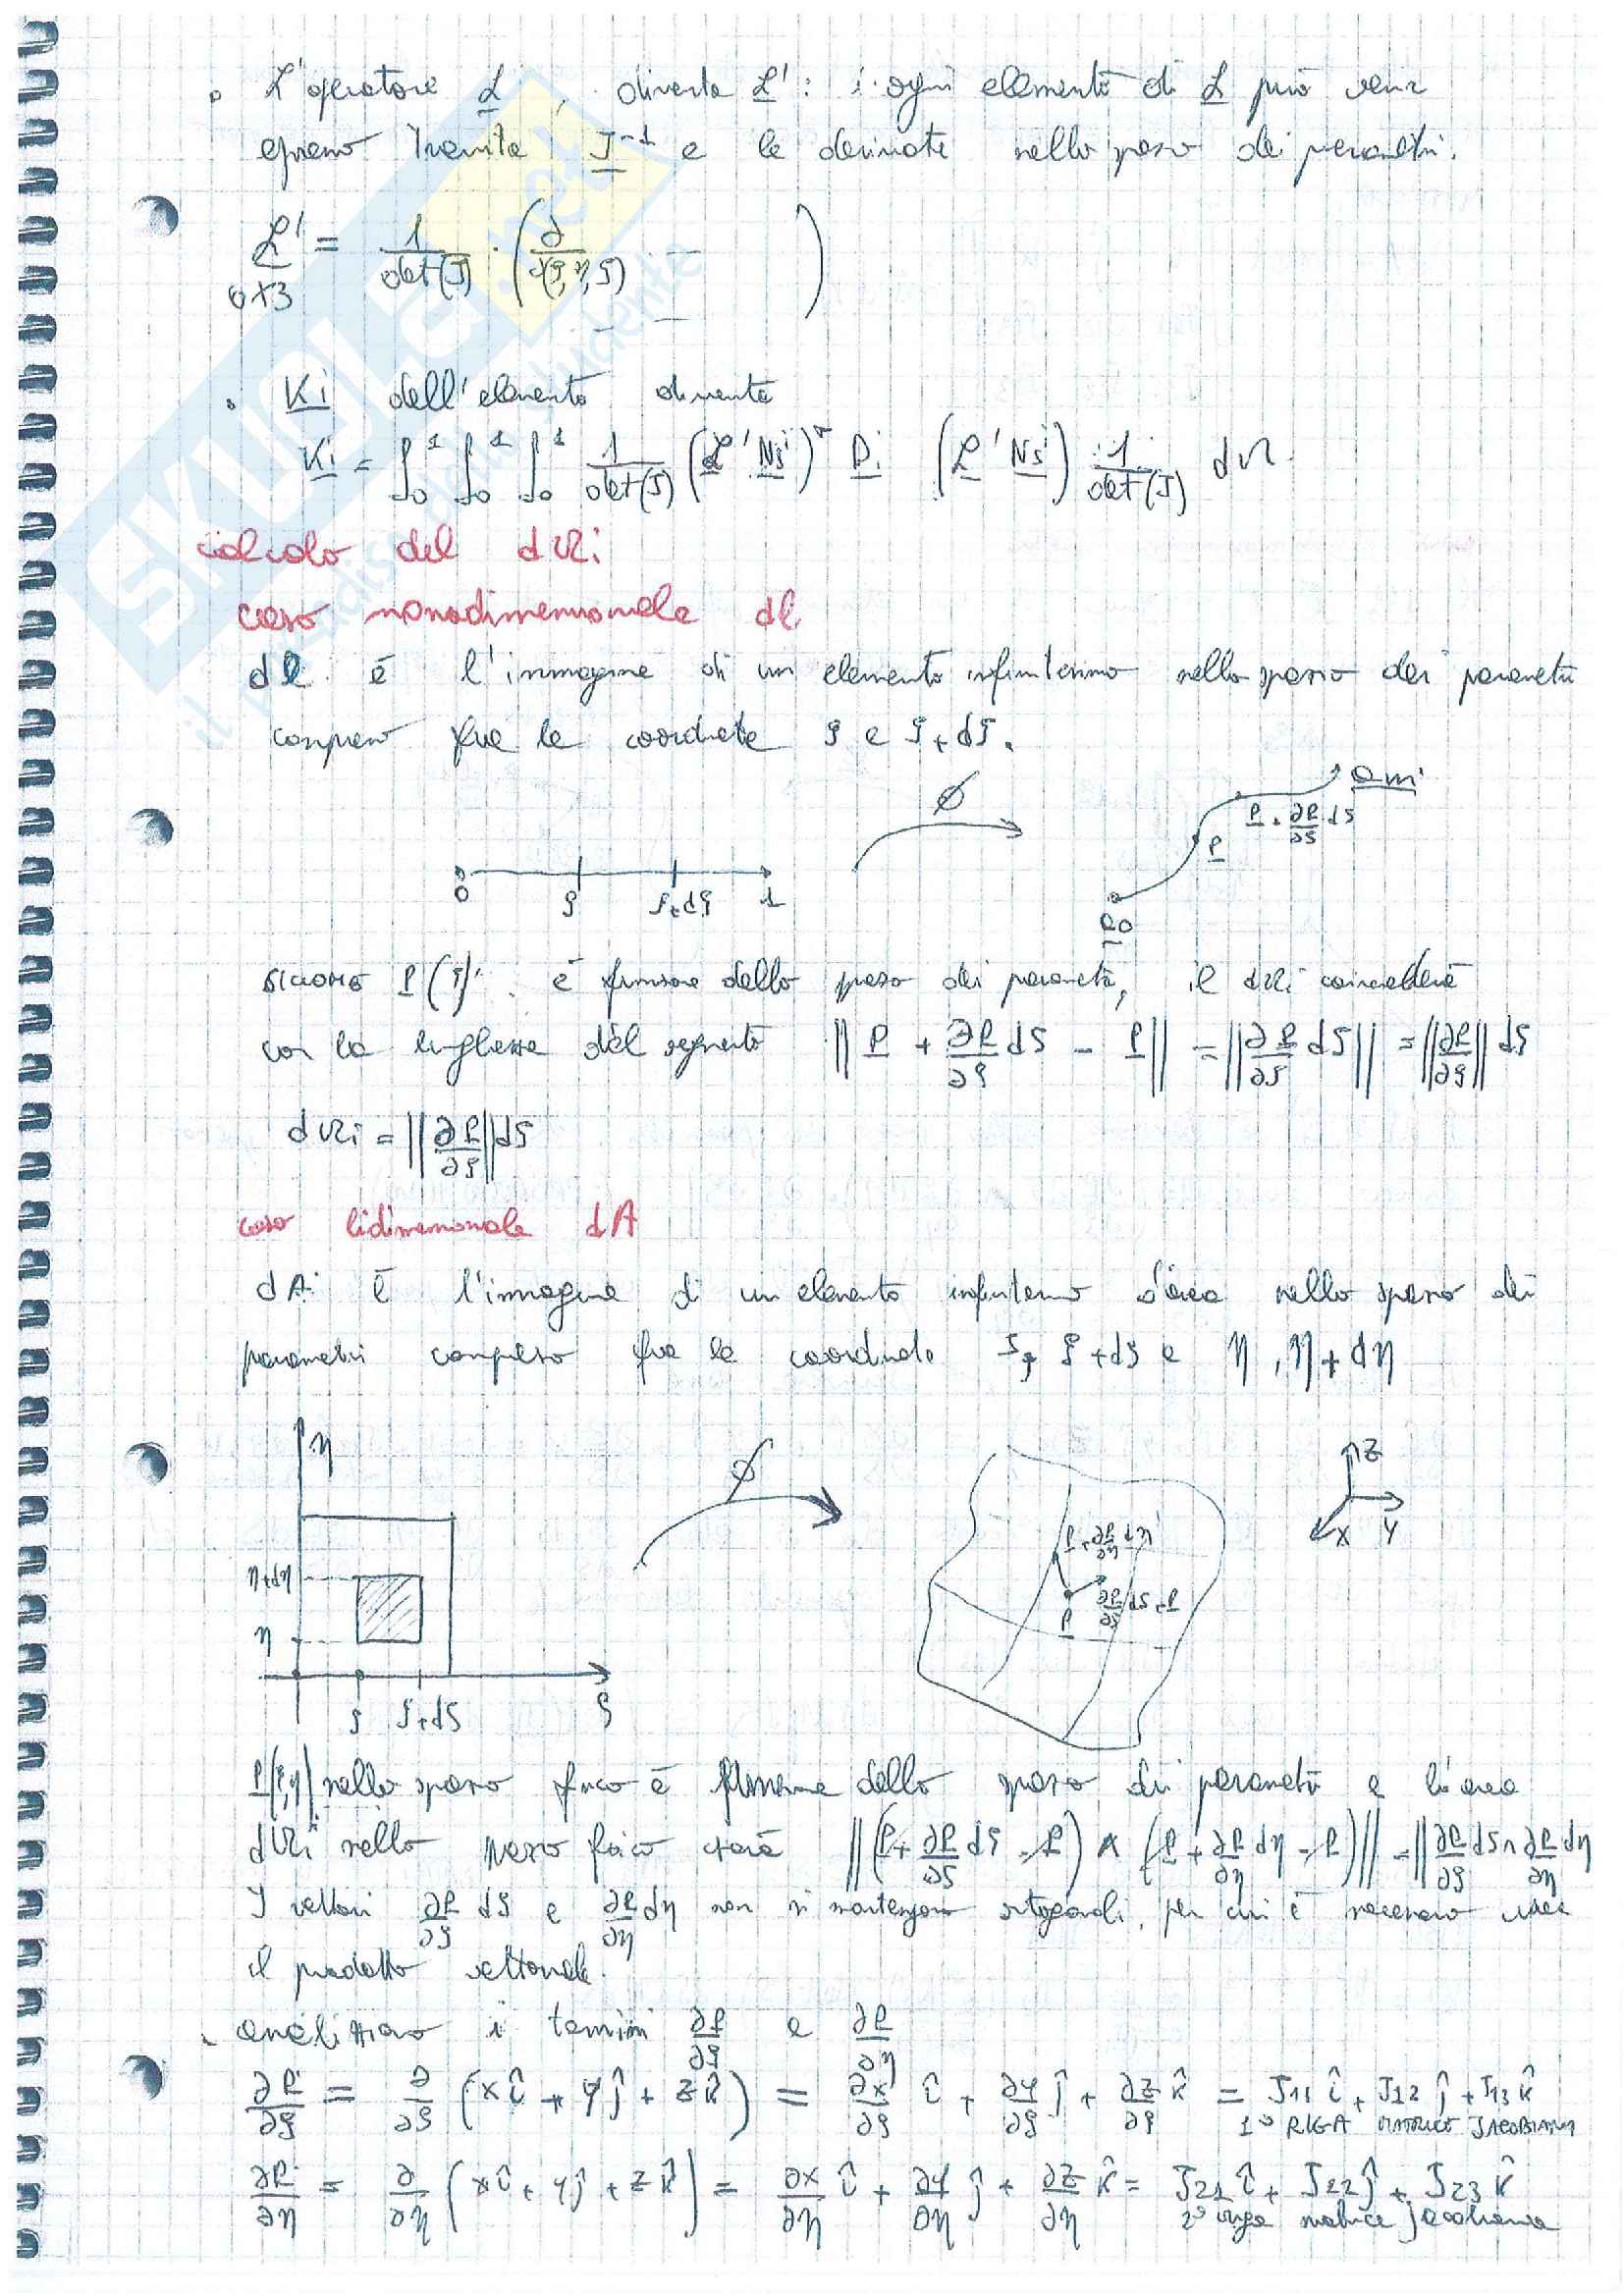 • L'operatore L, diventa L': ogni elemento di L può venir
espresso tramite J⁻¹ e le derivate nello spazio dei parametri.
L' = 1/det(J) · (∂/∂(ξ,η,ζ) — — )
6x3
• Ki dell'elemento diventa
Ki = ∫₀¹ ∫₀¹ ∫₀¹ 1/det(J) (L' Nsⁱ)ᵀ Di (L' Nsⁱ) 1/det(J) dΩ
calcolo del dΩi
caso monodimensionale dl
dl è l'immagine di un elemento infinitesimo nello spazio dei parametri
compreso fra le coordinate ξ e ξ+dξ.
0 ξ ξ+dξ 1
Φ
P
P + ∂P/∂ξ dξ
Ωmi
siccome P(ξ) è funzione dello spazio dei parametri, il dΩi coinciderà
con la lunghezza del segmento ‖P + ∂P/∂ξ dξ - P‖ = ‖∂P/∂ξ dξ‖ = ‖∂P/∂ξ‖ dξ
dΩi = ‖∂P/∂ξ‖ dξ
caso bidimensionale dA
dA è l'immagine di un elemento infinitesimo d'area nello spazio dei
parametri compreso fra le coordinate ξ, ξ+dξ e η, η+dη
η
η+dη
η
ξ ξ+dξ ξ
Φ
P + ∂P/∂η dη
∂P/∂ξ dξ + P
P
Z
X Y
P(ξ,η) nello spazio fisico è funzione dello spazio dei parametri e l'area
dΩi nello spazio fisico sarà ‖(P + ∂P/∂ξ dξ - P) ∧ (P + ∂P/∂η dη - P)‖ = ‖∂P/∂ξ dξ ∧ ∂P/∂η dη
I vettori ∂P/∂ξ dξ e ∂P/∂η dη non si mantengono ortogonali, per cui è necessario usare
il prodotto vettoriale.
• analizziamo i termini ∂P/∂ξ e ∂P/∂η
∂P/∂ξ = ∂/∂ξ (xî + yĵ + zk̂) = ∂x/∂ξ î + ∂y/∂ξ ĵ + ∂z/∂ξ k̂ = J11 î + J12 ĵ + J13 k̂
1° RIGA MATRICE JACOBIANA
∂P/∂η = ∂/∂η (xî + yĵ + zk̂) = ∂x/∂η î + ∂y/∂η ĵ + ∂z/∂η k̂ = J21 î + J22 ĵ + J23 k̂
2° riga matrice jacobiana
SKUOLA.net